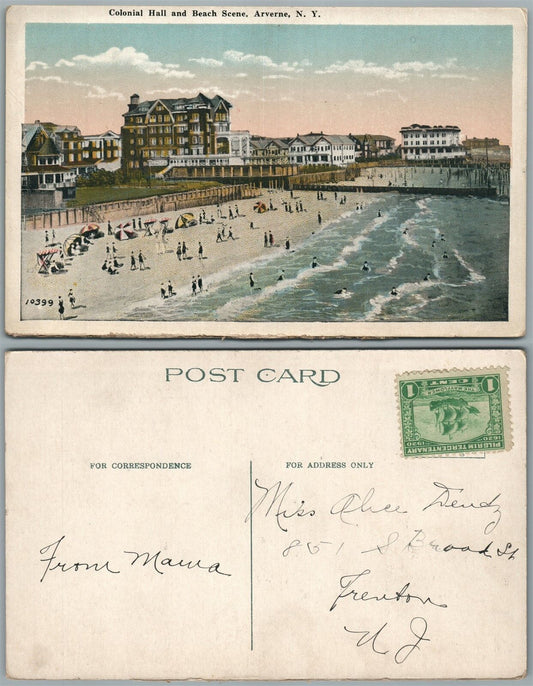 Colonial Hall and Beach Scene, Arverne, N. Y.
10399
POST CARD
1 CENT 1
THE MAYFLOWER
PILGRIM TERCENTENARY
1620 1920
FOR CORRESPONDENCE
FOR ADDRESS ONLY
Miss Alice Dendy
851 S Broad St
Trenton
N J
From Mama